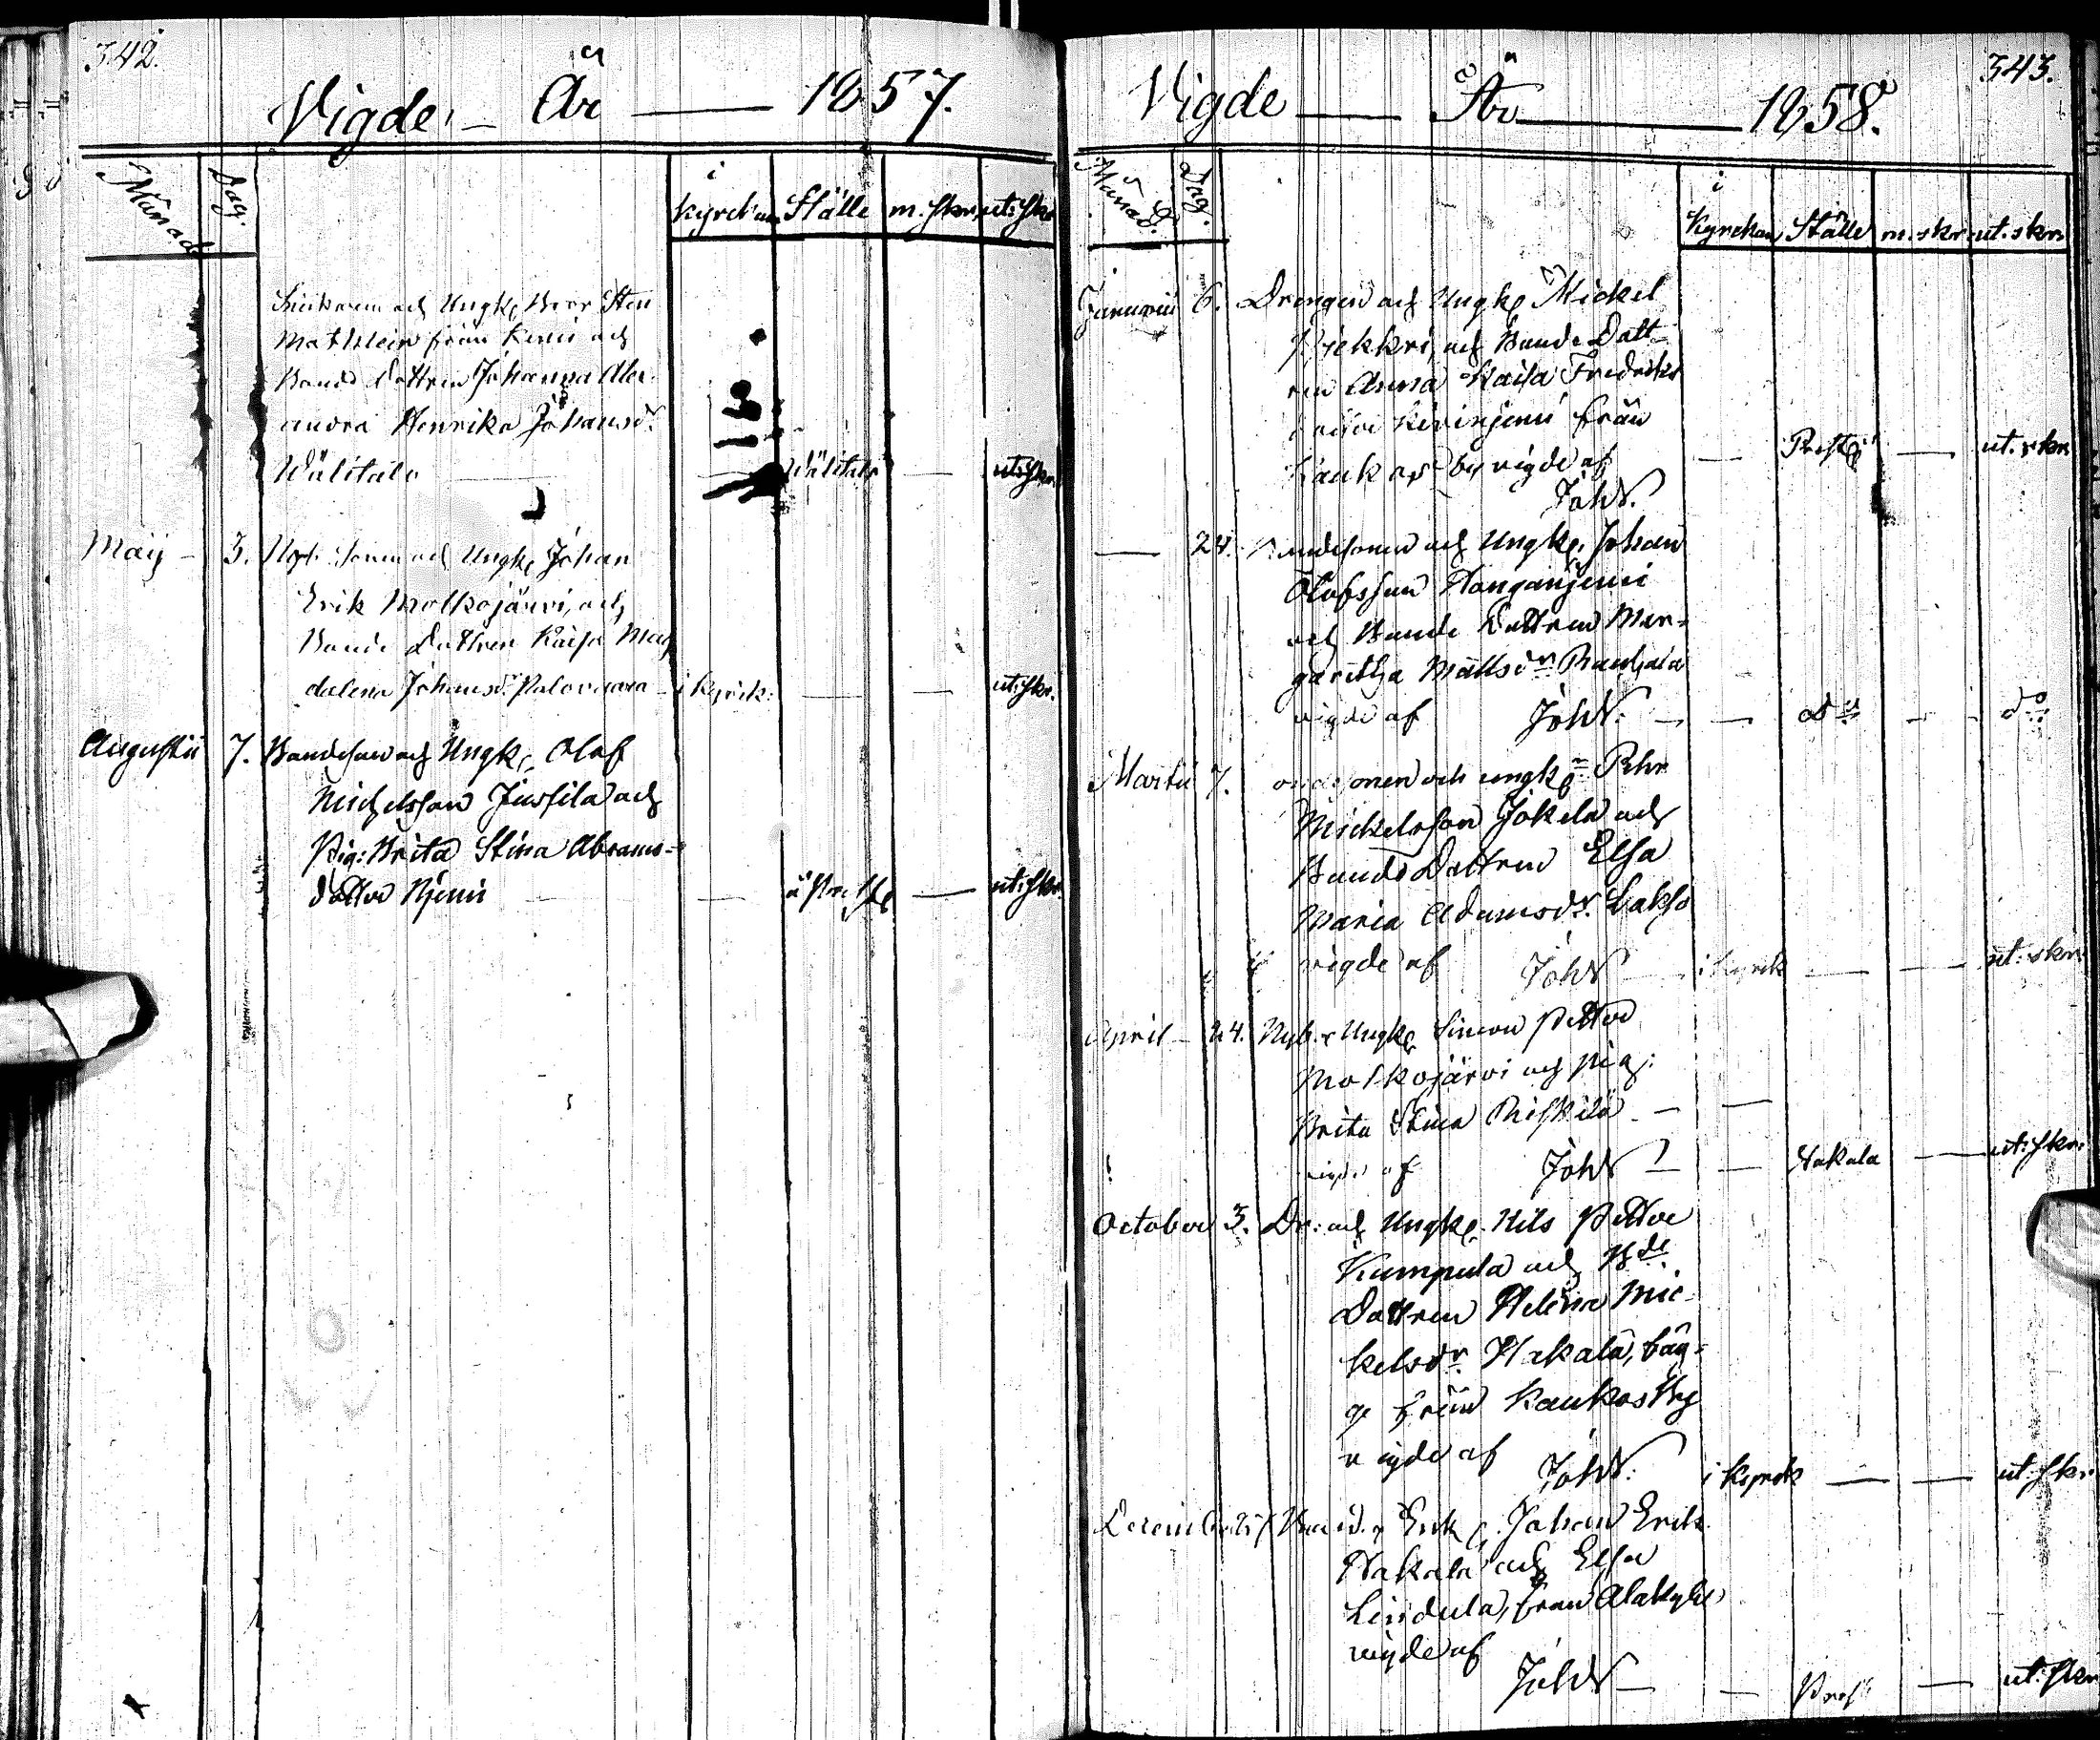 342.
Vigde, — År — 1857.
Månad Dag. i Kyrckan Ställe m.skr. ut:skr.
och Ungk Sten
från Kemi och
Bonde Dottren Johanna Alex-
andra Henrika Johansdr
Wälitalo — Wälitalo — ut:skr.
Maij — 3. Nyb. Sonen och Ungk Johan
Erik Molkojärvi, och
Bonde Dottren Kaisa Mag
dalena Johansdr Palovaara — i Kyrck: — — ut:skr.
Augustii 7. Bondeson och Ungk, Olof
Michelsson Jussila och
Pig: Brita Stina Abrams=
dotter Njemi — — ut:skr.
343.
Vigde — År — 1858.
Månad. Dag. i Kyrckan Ställe m.skr. ut.skr.
Januarii 6. Drengen och Ungk Mickel
och Bonde Dott-
ren Anna Kaisa Fredriks
Kivinjemi från
by vigde af — Prestg — ut.skr.
Joh W.
— 24. Bondesonen och Ungk. Johan
Olofsson Hanganjemi
och Bonde Dottren Mar=
garetha Mattsdr Rauhala
vigde af Joh W. — — do — do
Martii 7. ondesonen och ungk Pehr
Mickelsson Jokela och
Bonde Dottren Elsa
Maria Adamsdr. Lakso
vigde af Joh W — i Kyrck — — ut:skr.
April — 24. Nyb. Ungk Simon Petter
Molkojärvi och pig:
Brita Stina Riskilä — —
vigde af Joh W — — Hakala — ut:skr.
October 3. Dr: och Ungk. Nils Petter
Kumpula och Bde
Dottren Helena Mic-
kelsdr. Hakala, båg=
ge från Kaukos by
vigde af Joh W. i Kyrck — — ut.skr.
December Enk Johan Erik
Hakala och Elsa
Lindula, från Alakylä,
vigde af
Joh W — — Prest — ut.skr